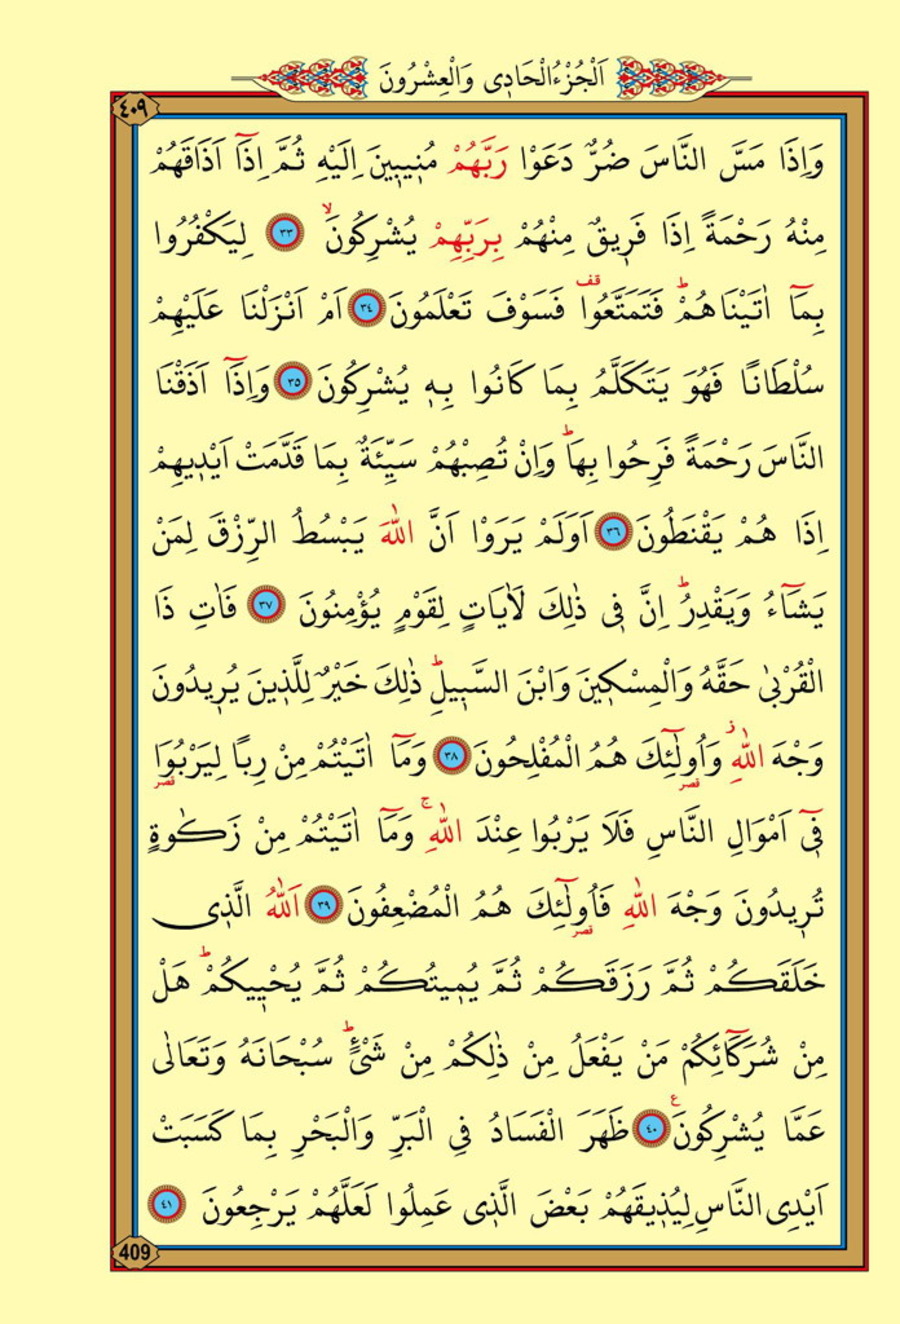 اَلْجُزْءُ الْحَادِى وَالْعِشْرُونَ
٤٠٩
وَاِذَا مَسَّ النَّاسَ ضُرٌّ دَعَوْا رَبَّهُمْ مُنِيبِينَ اِلَيْهِ ثُمَّ اِذَٓا اَذَاقَهُمْ
مِنْهُ رَحْمَةً اِذَا فَرِيقٌ مِنْهُمْ بِرَبِّهِمْ يُشْرِكُونَۙ ٣٣ لِيَكْفُرُوا
بِمَٓا اٰتَيْنَاهُمْۜ فَتَمَتَّعُوا۠ قف فَسَوْفَ تَعْلَمُونَ ٣٤ اَمْ اَنْزَلْنَا عَلَيْهِمْ
سُلْطَانًا فَهُوَ يَتَكَلَّمُ بِمَا كَانُوا بِهِ يُشْرِكُونَ ٣٥ وَاِذَٓا اَذَقْنَا
النَّاسَ رَحْمَةً فَرِحُوا بِهَاۜ وَاِنْ تُصِبْهُمْ سَيِّئَةٌ بِمَا قَدَّمَتْ اَيْدِيهِمْ
اِذَا هُمْ يَقْنَطُونَ ٣٦ اَوَلَمْ يَرَوْا اَنَّ اللّٰهَ يَبْسُطُ الرِّزْقَ لِمَنْ
يَشَٓاءُ وَيَقْدِرُۜ اِنَّ فِى ذٰلِكَ لَاٰيَاتٍ لِقَوْمٍ يُؤْمِنُونَ ٣٧ فَاٰتِ ذَا
الْقُرْبٰى حَقَّهُ وَالْمِسْكِينَ وَابْنَ السَّبِيلِۜ ذٰلِكَ خَيْرٌ لِلَّذِينَ يُرِيدُونَ
وَجْهَ اللّٰهِۘ وَاُو۬لٰٓئِكَ هُمُ الْمُفْلِحُونَ ٣٨ وَمَٓا اٰتَيْتُمْ مِنْ رِبًا لِيَرْبُوَا
فِٓى اَمْوَالِ النَّاسِ فَلَا يَرْبُوا عِنْدَ اللّٰهِۚ وَمَٓا اٰتَيْتُمْ مِنْ زَكٰوةٍ
تُرِيدُونَ وَجْهَ اللّٰهِ فَاُو۬لٰٓئِكَ هُمُ الْمُضْعِفُونَ ٣٩ اَللّٰهُ الَّذِى
خَلَقَكُمْ ثُمَّ رَزَقَكُمْ ثُمَّ يُمِيتُكُمْ ثُمَّ يُحْيِيكُمْۜ هَلْ
مِنْ شُرَكَٓائِكُمْ مَنْ يَفْعَلُ مِنْ ذٰلِكُمْ مِنْ شَىْءٍۜ سُبْحَانَهُ وَتَعَالٰى
عَمَّا يُشْرِكُونَ۟ ٤٠ ظَهَرَ الْفَسَادُ فِى الْبَرِّ وَالْبَحْرِ بِمَا كَسَبَتْ
اَيْدِى النَّاسِ لِيُذِيقَهُمْ بَعْضَ الَّذِى عَمِلُوا لَعَلَّهُمْ يَرْجِعُونَ ٤١
409